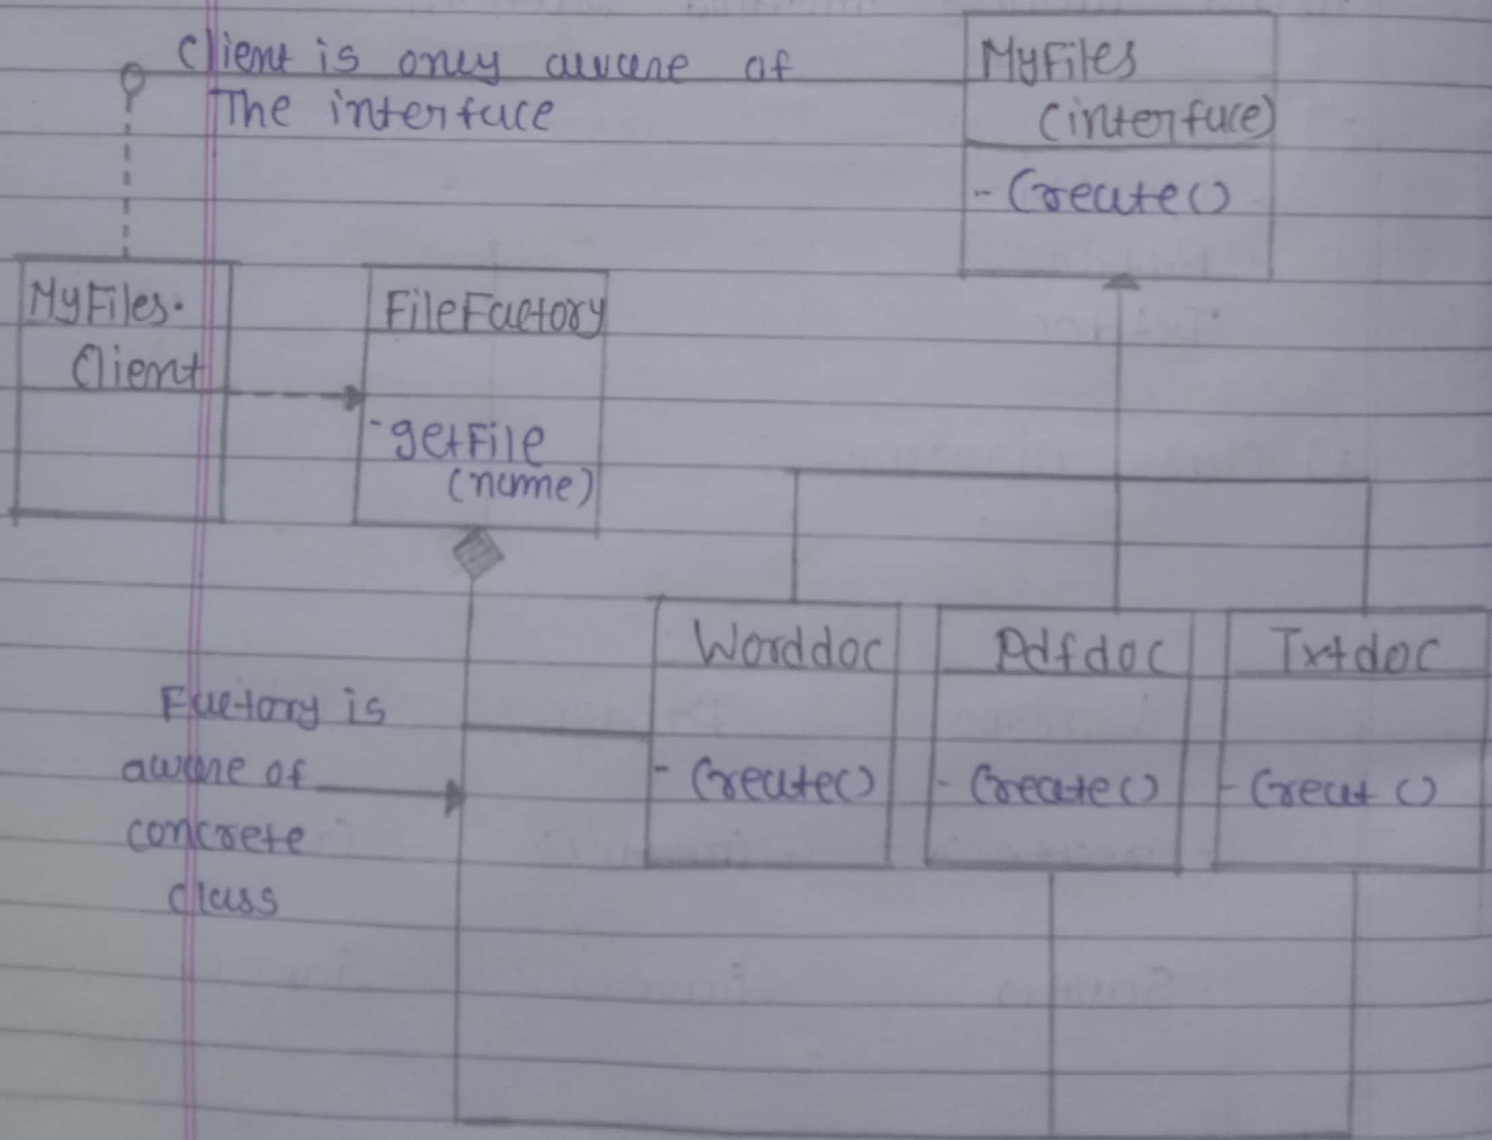 Client is only aware of
The interface
MyFiles
(interface)
- Create()
MyFiles.
Client
FileFactory
- getFile
(name)
Worddoc
- Create()
Pdfdoc
- Create()
Txtdoc
- Creat ()
Factory is
aware of
concrete
class